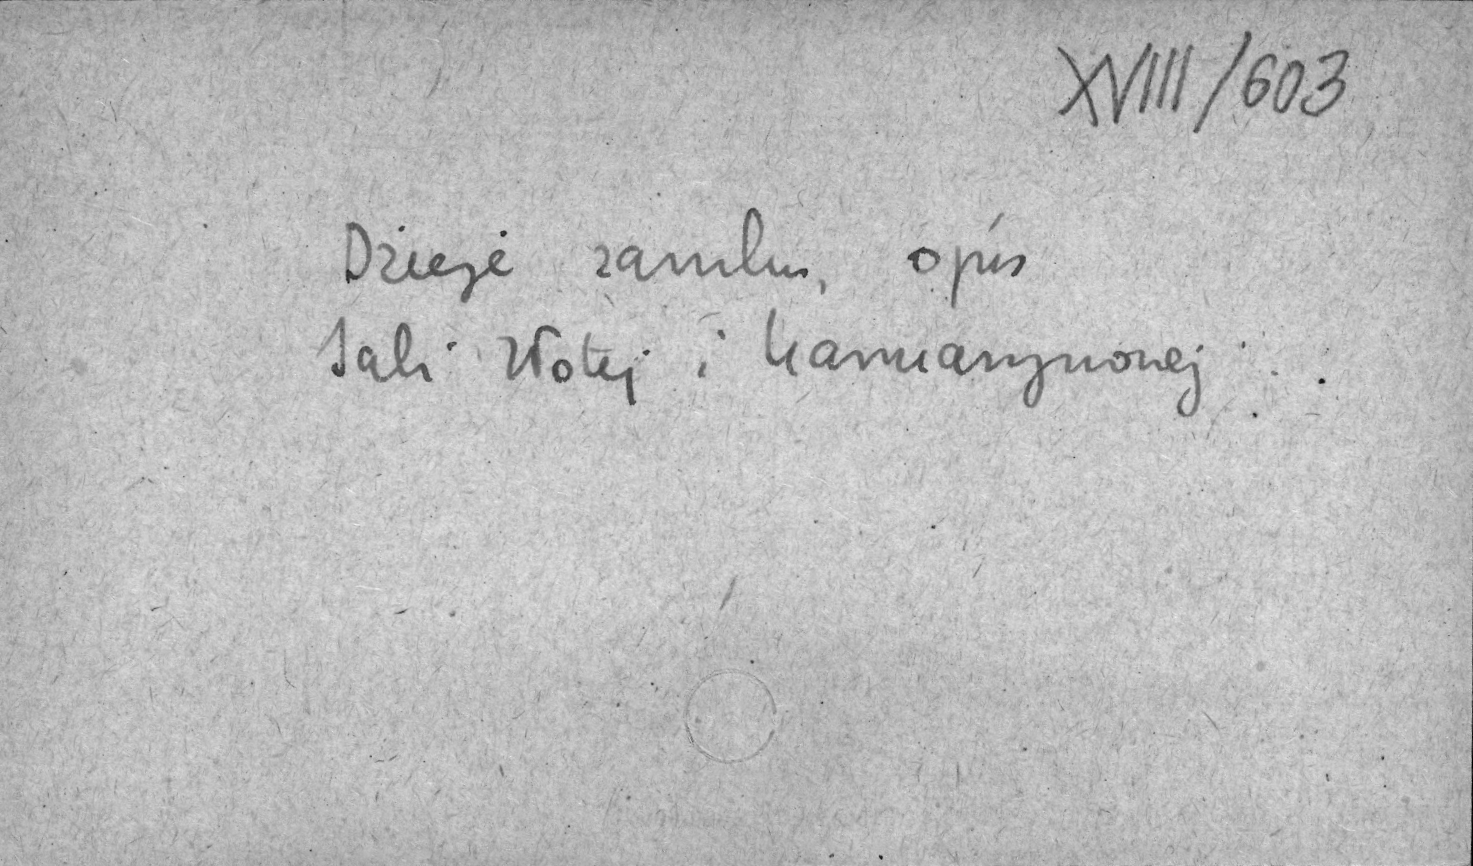 XVIII/603
Dzieje zamku, opis
Sali Złotej i Karmazynowej